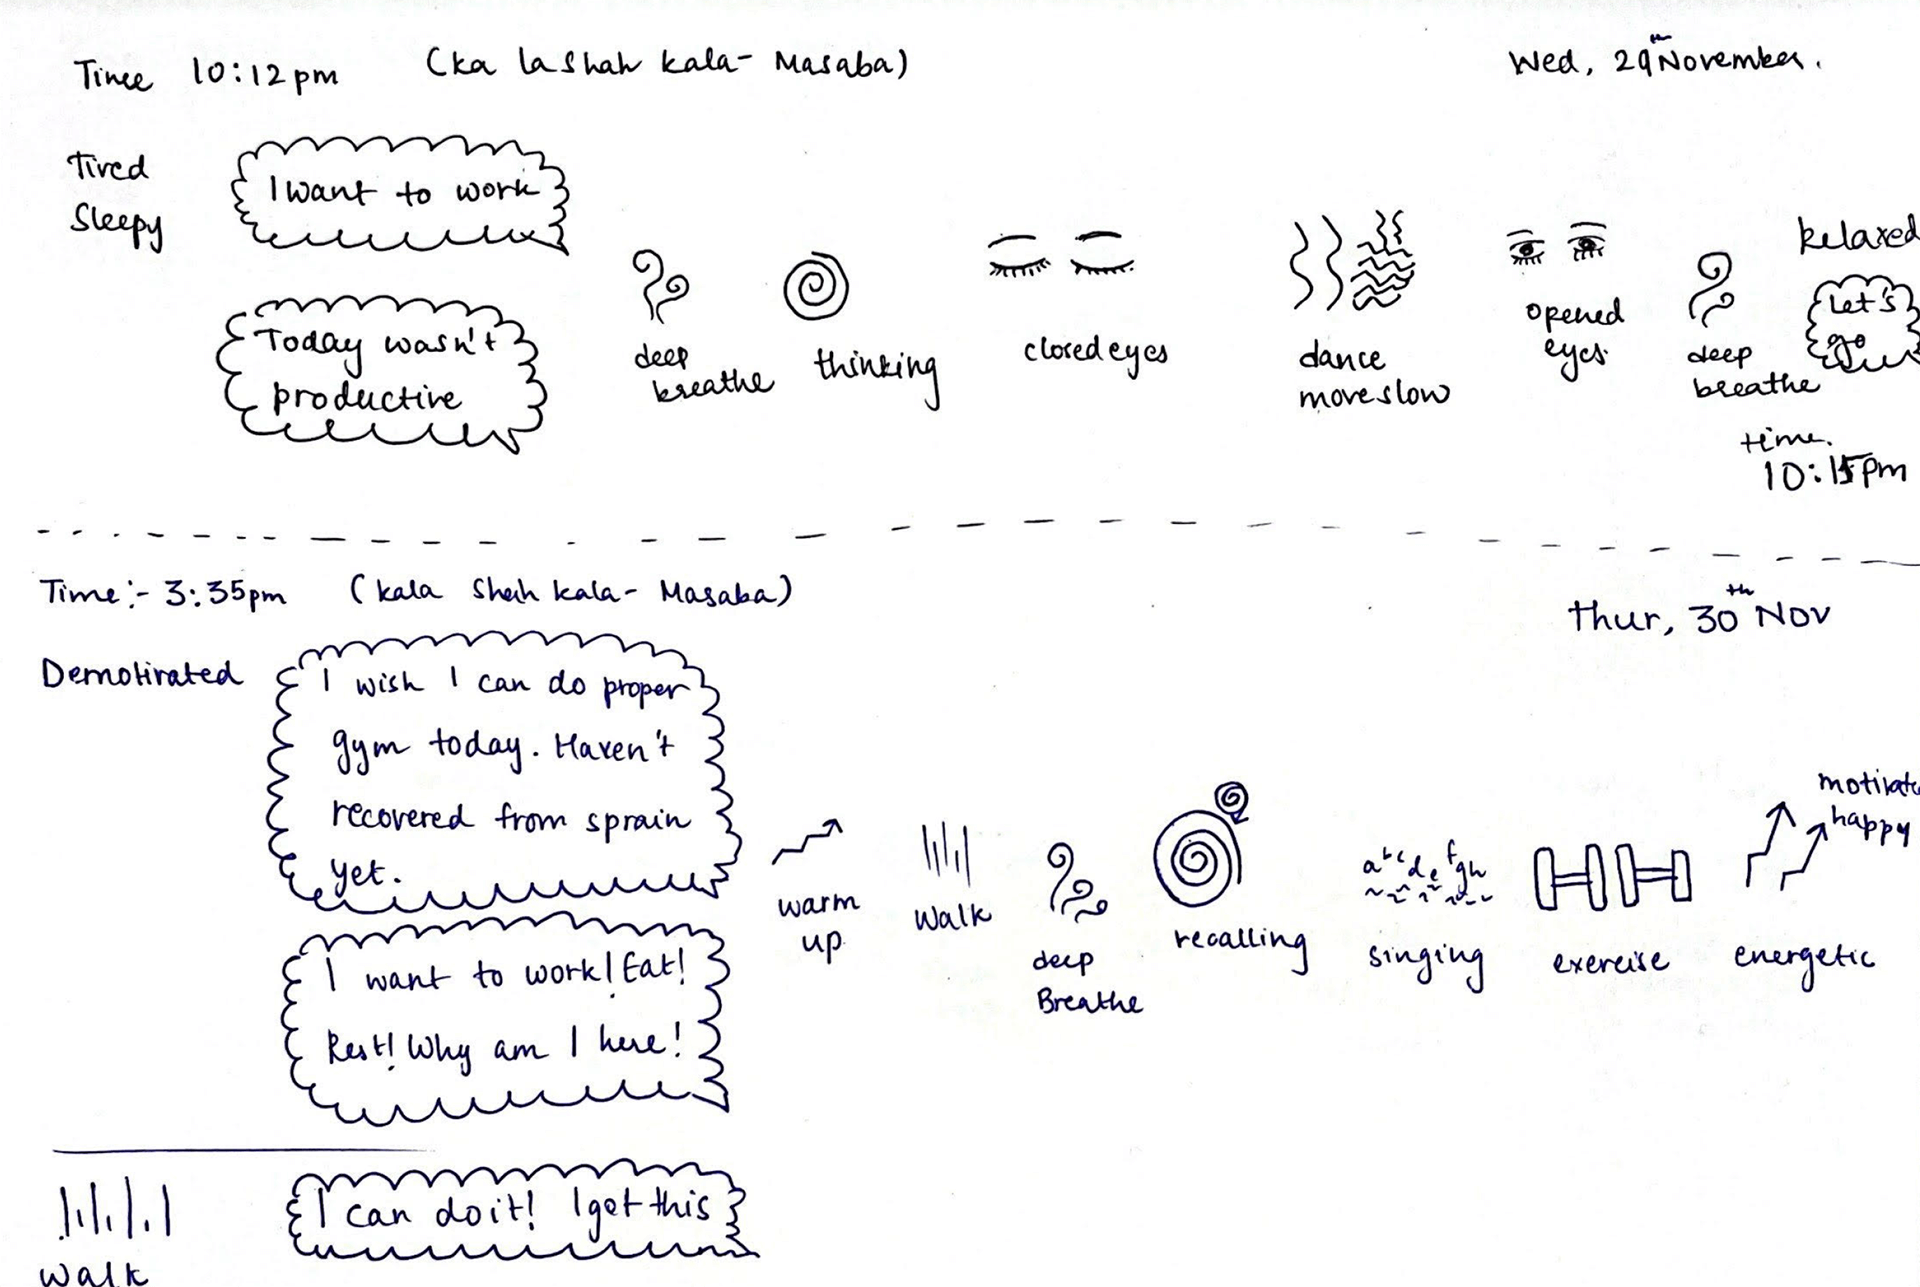 Time 10:12pm (ka la shah kala- Masaba) Wed, 29th November.
Tired
Sleepy
I want to work
Today wasn't
productive
deep
breathe
thinking
closed eyes
dance
move slow
opened
eyes
deep
breathe
Relaxed
Let's
go
time.
10:15pm
Time:- 3:35pm (kala Shah kala- Masaba) Thur, 30th Nov
Demotivated
I wish I can do proper
gym today. Haven't
recovered from sprain
yet.
I want to work! Eat!
Rest! Why am I here!
warm
up
walk
deep
Breathe
recalling
abcdefgh
singing
exercise
motivate
happy
energetic
walk
I can do it! I got this